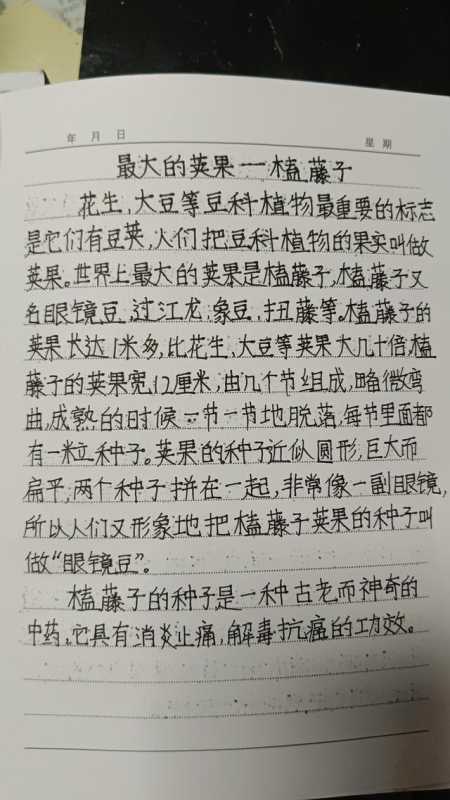 年 月 日
星 期
最大的荚果——榼藤子
花生,大豆等豆科植物最重要的标志
是它们有豆荚,人们把豆科植物的果实叫做
荚果。世界上最大的荚果是榼藤子,榼藤子又
名眼镜豆,过江龙,象豆,扭藤等。榼藤子的
荚果长达1米多,比花生,大豆等荚果大几十倍,榼
藤子的荚果宽12厘米,由几个节组成,略微弯
曲,成熟的时候一节一节地脱落,每节里面都
有一粒种子。荚果的种子近似圆形,巨大而
扁平,两个种子拼在一起,非常像一副眼镜,
所以人们又形象地把榼藤子荚果的种子叫
做“眼镜豆”。
榼藤子的种子是一种古老而神奇的
中药。它具有消炎止痛,解毒抗癌的功效。